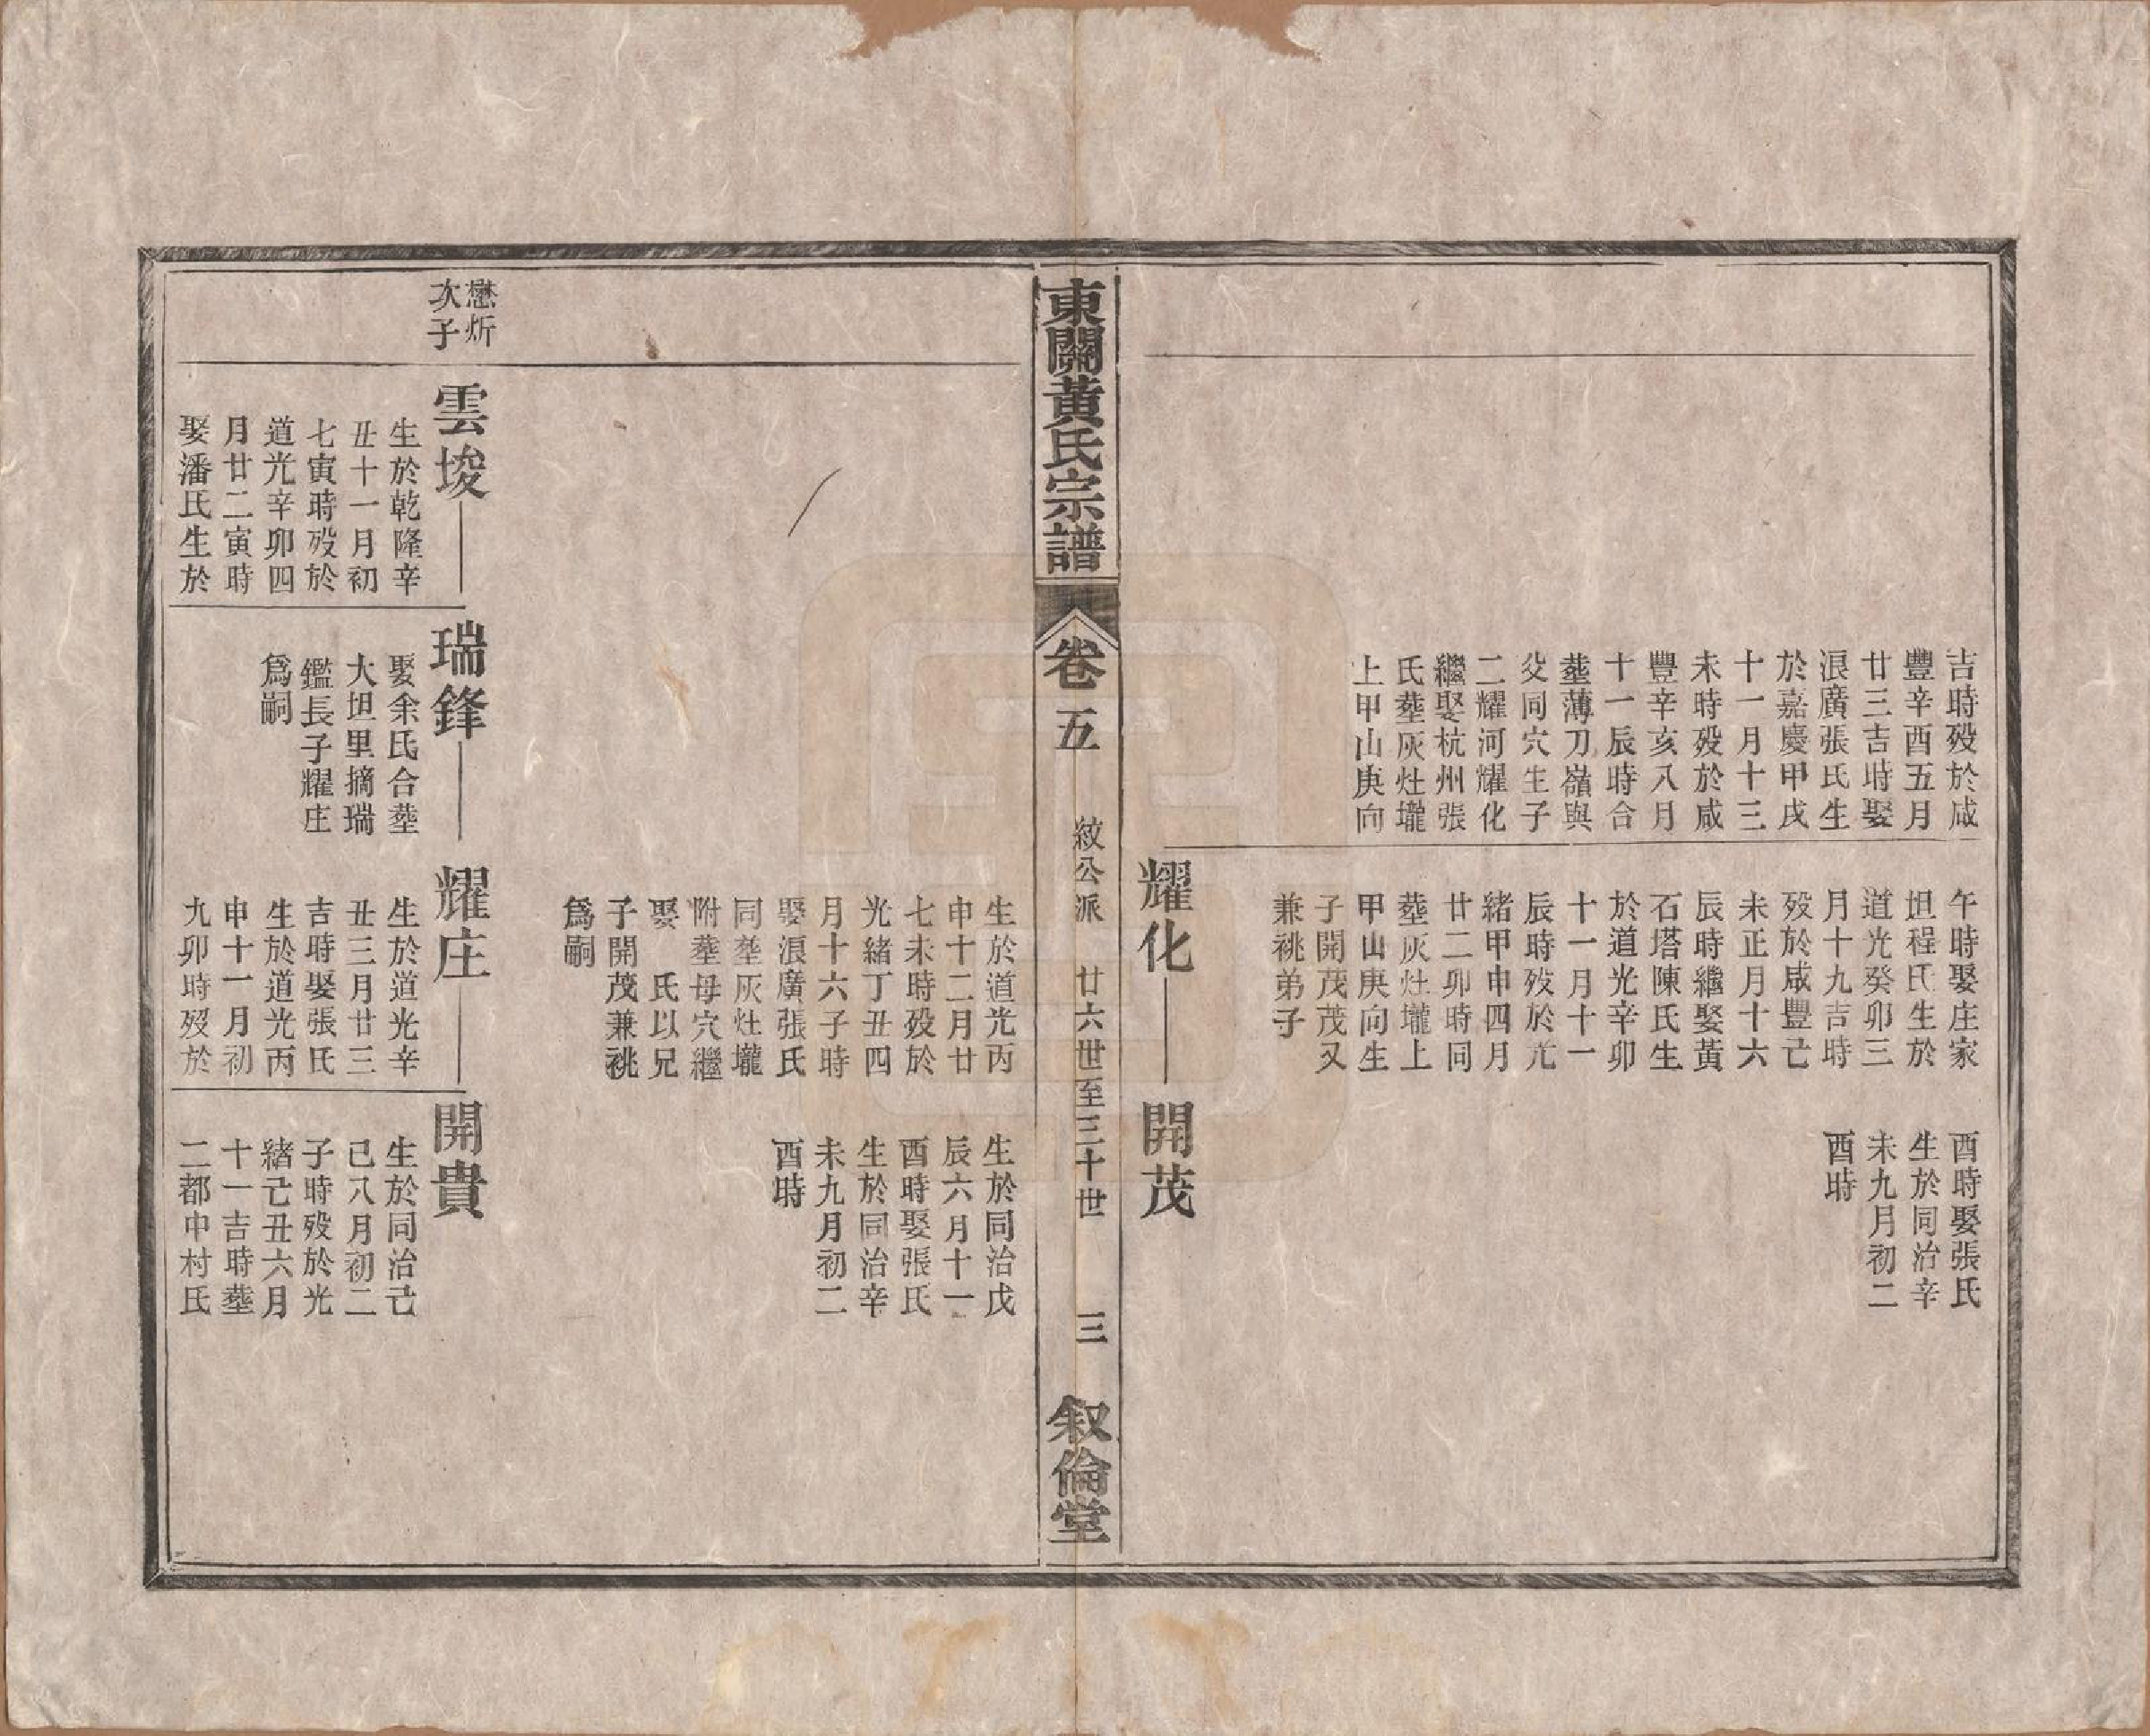 吉時歿於咸
豐辛酉五月
廿三吉時娶
浪廣張氏生
於嘉慶甲戌
十一月十三
未時歿於咸
豐辛亥八月
十一辰時合
塟薄刀嶺與
父同穴生子
二耀河耀化
繼娶杭州張
氏塟灰灶壠
上甲山庚向
午時娶庄家
坦程氏生於
道光癸卯三
月十九吉時
歿於咸豐己
未正月十六
辰時繼娶黃
石塔陳氏生
於道光辛卯
十一月十一
辰時歿於光
緒甲申四月
廿二卯時同
塟灰灶壠上
甲山庚向生
子開茂茂又
兼祧弟子
酉時娶張氏
生於同治辛
未九月初二
酉時
耀化
開茂
東關黃氏宗譜
卷五
紋公派 廿六世至三十世
三
叙倫堂
生於道光丙
申十二月廿
七未時歿於
光緒丁丑四
月十六子時
娶浪廣張氏
同塟灰灶壠
附塟母穴繼
娶 氏以兄
子開茂兼祧
為嗣
生於同治戊
辰六月十一
酉時娶張氏
生於同治辛
未九月初二
酉時
懋炘
次子
雲埈
生於乾隆辛
丑十一月初
七寅時歿於
道光辛卯四
月廿二寅時
娶潘氏生於
瑞鋒
娶余氏合塟
大坦里摘瑞
鑑長子耀庄
為嗣
耀庄
生於道光辛
丑三月廿三
吉時娶張氏
生於道光丙
申十一月初
九卯時歿於
開貴
生於同治己
巳八月初二
子時歿於光
緒己丑六月
十一吉時塟
二都中村氏